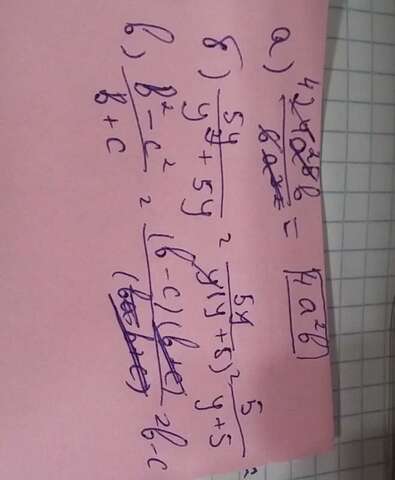 а) = 4a²b
б) 5y / y² + 5y = 5y / y(y + 5) = 5 / y + 5 =
в) b² - c² / b + c = (b - c)(b + c) / (b + c) = b - c